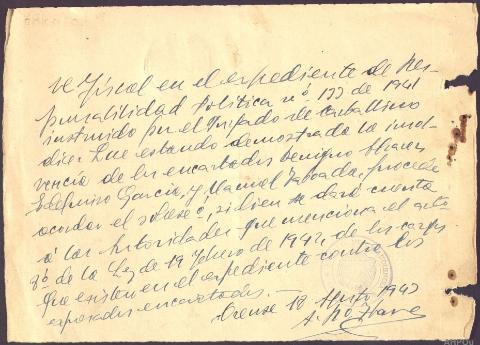 El Fiscal en el expediente de Res-
ponsabilidad Política nº 177 de 1941
instruido por el Juzgado de Carballino
dice: Que estando demostrada la insol-
vencia de los encartados Benigno Alvarez
Edelmiro García, y Manuel Taboada, procede
acordar el sobreseº, si bien se dará cuenta
á las Autoridades que menciona el artº
8º de la Ley de 19 Febrero de 1942, de los cargos
que existen en el expediente contra los
expresados encartados.—
Orense 18 Agosto 1943